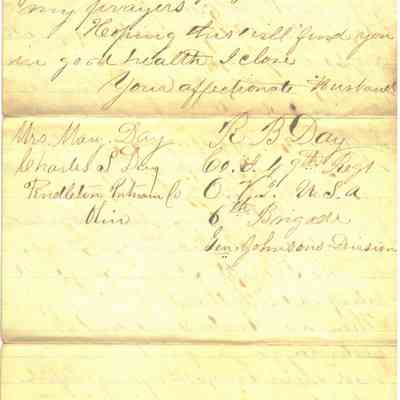 my prayers.
Hoping this will find you
in good health I close
Your affectionate Husband
Mrs. Mary Day R B Day
Charles S Day Co. I 49th Regt
Pendleton Putnam Co O. V. I. U. S. A
Ohio 6th Brigade
Gen Johnsons Division